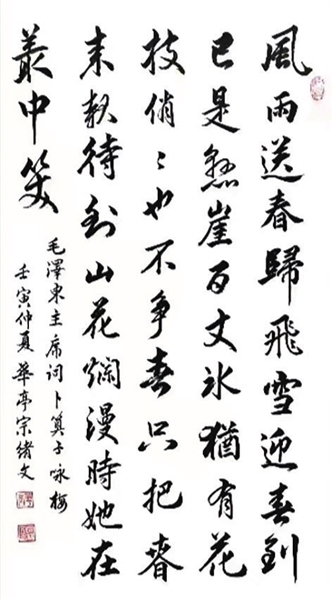 風雨送春歸飛雪迎春到
已是懸崖百丈冰猶有花
枝俏〻也不争春只把春
来報待到山花爛漫時她在
叢中笑
毛澤东主席词卜算子咏梅
壬寅仲夏華亭宗绪文